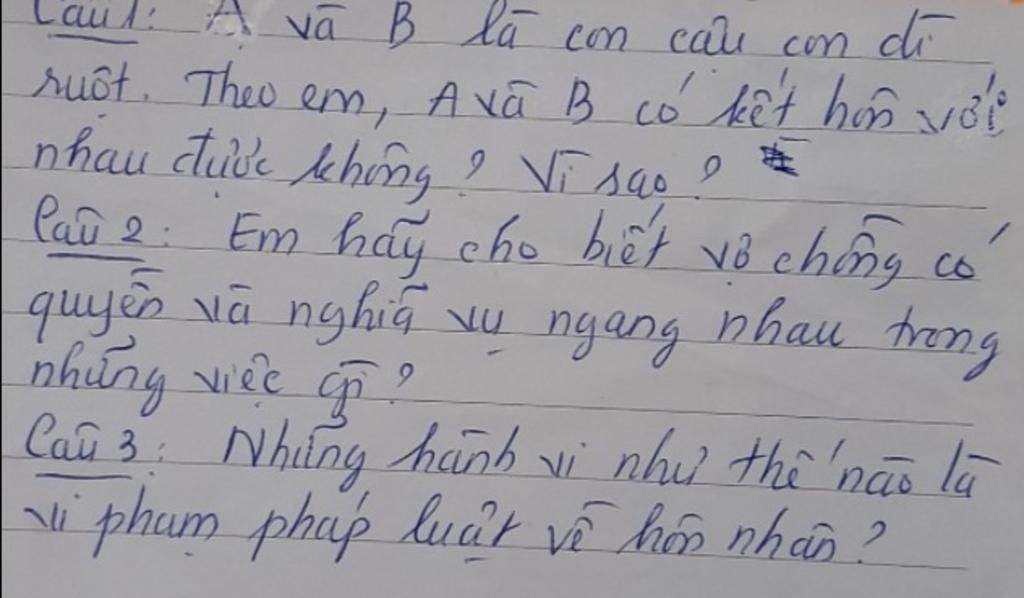 Câu 1: A và B là con cậu con dì
ruột. Theo em, A và B có kết hôn với
nhau được không? Vì sao?
Câu 2: Em hãy cho biết vợ chồng có
quyền và nghĩa vụ ngang nhau trong
những việc gì?
Câu 3: Những hành vi như thế nào là
vi phạm pháp luật về hôn nhân?